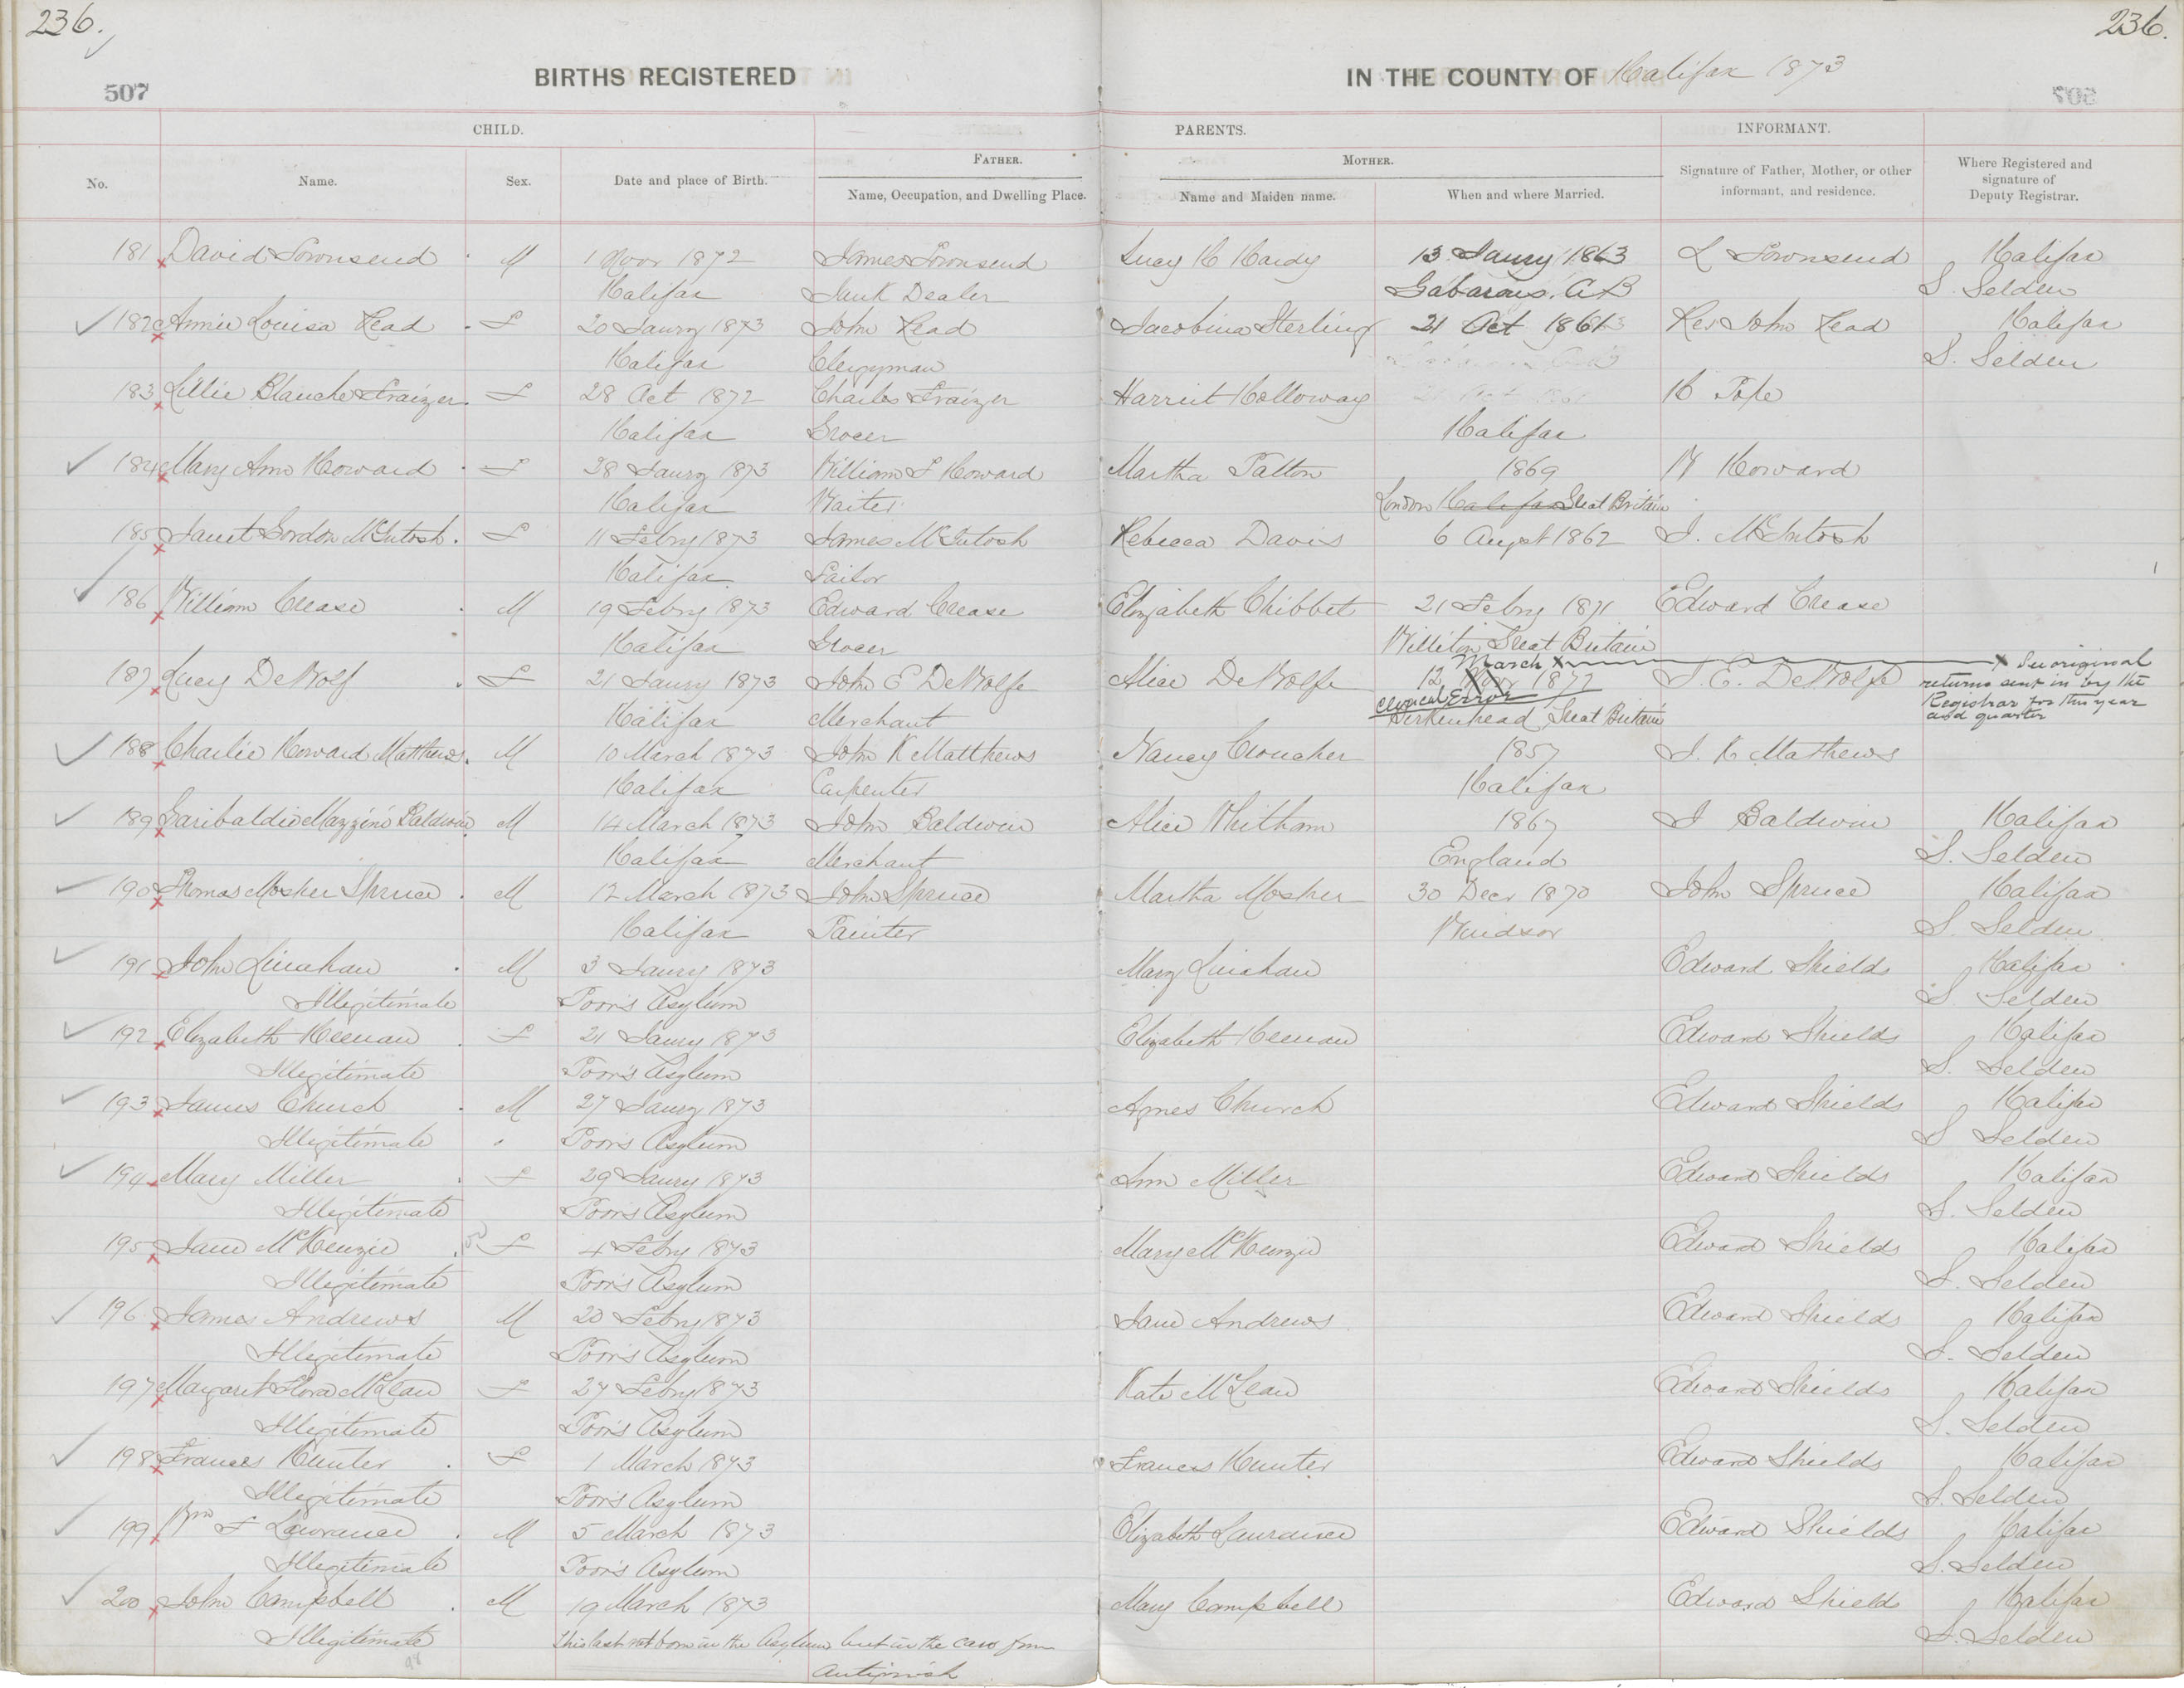 236.
236.
BIRTHS REGISTERED
IN THE COUNTY OF Halifax 1873
507
CHILD.
PARENTS.
INFORMANT.
No.
Name.
Sex.
Date and place of Birth.
FATHER.
Name, Occupation, and Dwelling Place.
MOTHER.
Name and Maiden name.
When and where Married.
Signature of Father, Mother, or other
informant, and residence.
Where Registered and
signature of
Deputy Registrar.
181 David Townsend M 1 Novr 1872 James Townsend Lucy H Hardy 13 Jaury 1863 L Townsend Halifax
Halifax Junk Dealer Gabarous. C B S Selden
182 Annie Louisa Read F 20 Jaury 1873 John Read Jacobina Sterling 21 Oct Rev John Read Halifax
Halifax Clergyman S. Selden
183 Lillie Blanche Fraizer F 28 Oct 1872 Charles Fraizer Harriet Holloway H Pope
Halifax Grocer Halifax
184 Mary Ann Howard F 28 Jaury 1873 William F Howard Martha Patton 1869 W Howard
Halifax Waiter London Halifax Great Britain
185 Janet Gordon McIntosh F 11 Febry 1873 James McIntosh Rebecca Davis 6 Augst 1862 J. McIntosh
Halifax Tailor
186 William Crease M 19 Febry 1873 Edward Crease Elizabeth Chibbet 21 Febry 1871 Edward Crease
Halifax Grocer Williton Great Britain
March X X In original
187 Lucy DeWolf F 21 Jaury 1873 John E DeWolfe Alice DeWolfe 12 1872 J. E. DeWolfe returns sent in by the
clerical Error Registrar for this year
Halifax Merchant Berkenhead Great Britain and quarter
188 Charlie Howard Matthews M 10 March 1873 John K Matthews Nancy Croucher 1857 J. K Mathews
Halifax Carpenter Halifax
189 Garibaldie Mazzini Baldwin M 14 March 1873 John Baldwin Alice Whitham 1867 J Baldwin Halifax
Halifax Merchant England S. Selden
190 Thomas Mosher Spruce M 12 March 1873 John Spruce Martha Mosher 30 Decr 1870 John Spruce Halifax
Halifax Painter Windsor S. Selden
191 John Linahan M 3 Jaury 1873 Mary Linahan Edward Shields Halifax
Illegitimate Poor's Asylum S. Selden
192 Elizabeth Heenan F 21 Jaury 1873 Elizabeth Heenan Edward Shields Halifax
Illegitimate Poor's Asylum S. Selden
193 James Church M 27 Jaury 1873 Agnes Church Edward Shields Halifax
Illegitimate Poor's Asylum S Selden
194 Mary Miller F 29 Jaury 1873 Ann Miller Edward Shields Halifax
Illegitimate Poor's Asylum S. Selden
195 Jane McKenzie F 4 Febry 1873 Mary McKenzie Edward Shields Halifax
Illegitimate Poor's Asylum S. Selden
196 James Andrews M 20 Febry 1873 Jane Andrews Edward Shields Halifax
Illegitimate Poor's Asylum S. Selden
197 Margaret Flora McLean F 27 Febry 1873 Kate McLean Edward Shields Halifax
Illegitimate Poor's Asylum S. Selden
198 Frances Hunter F 1 March 1873 Frances Hunter Edward Shields Halifax
Illegitimate Poor's Asylum S. Selden
199 Wm F Lawrance M 5 March 1873 Elizabeth Laurance Edward Shields Halifax
Illegitimate Poor's Asylum S. Selden
200 John Campbell M 19 March 1873 Mary Campbell Edward Shields Halifax
Illegitimate this last not born in the Asylum but in the cars from S. Selden
Antigonish